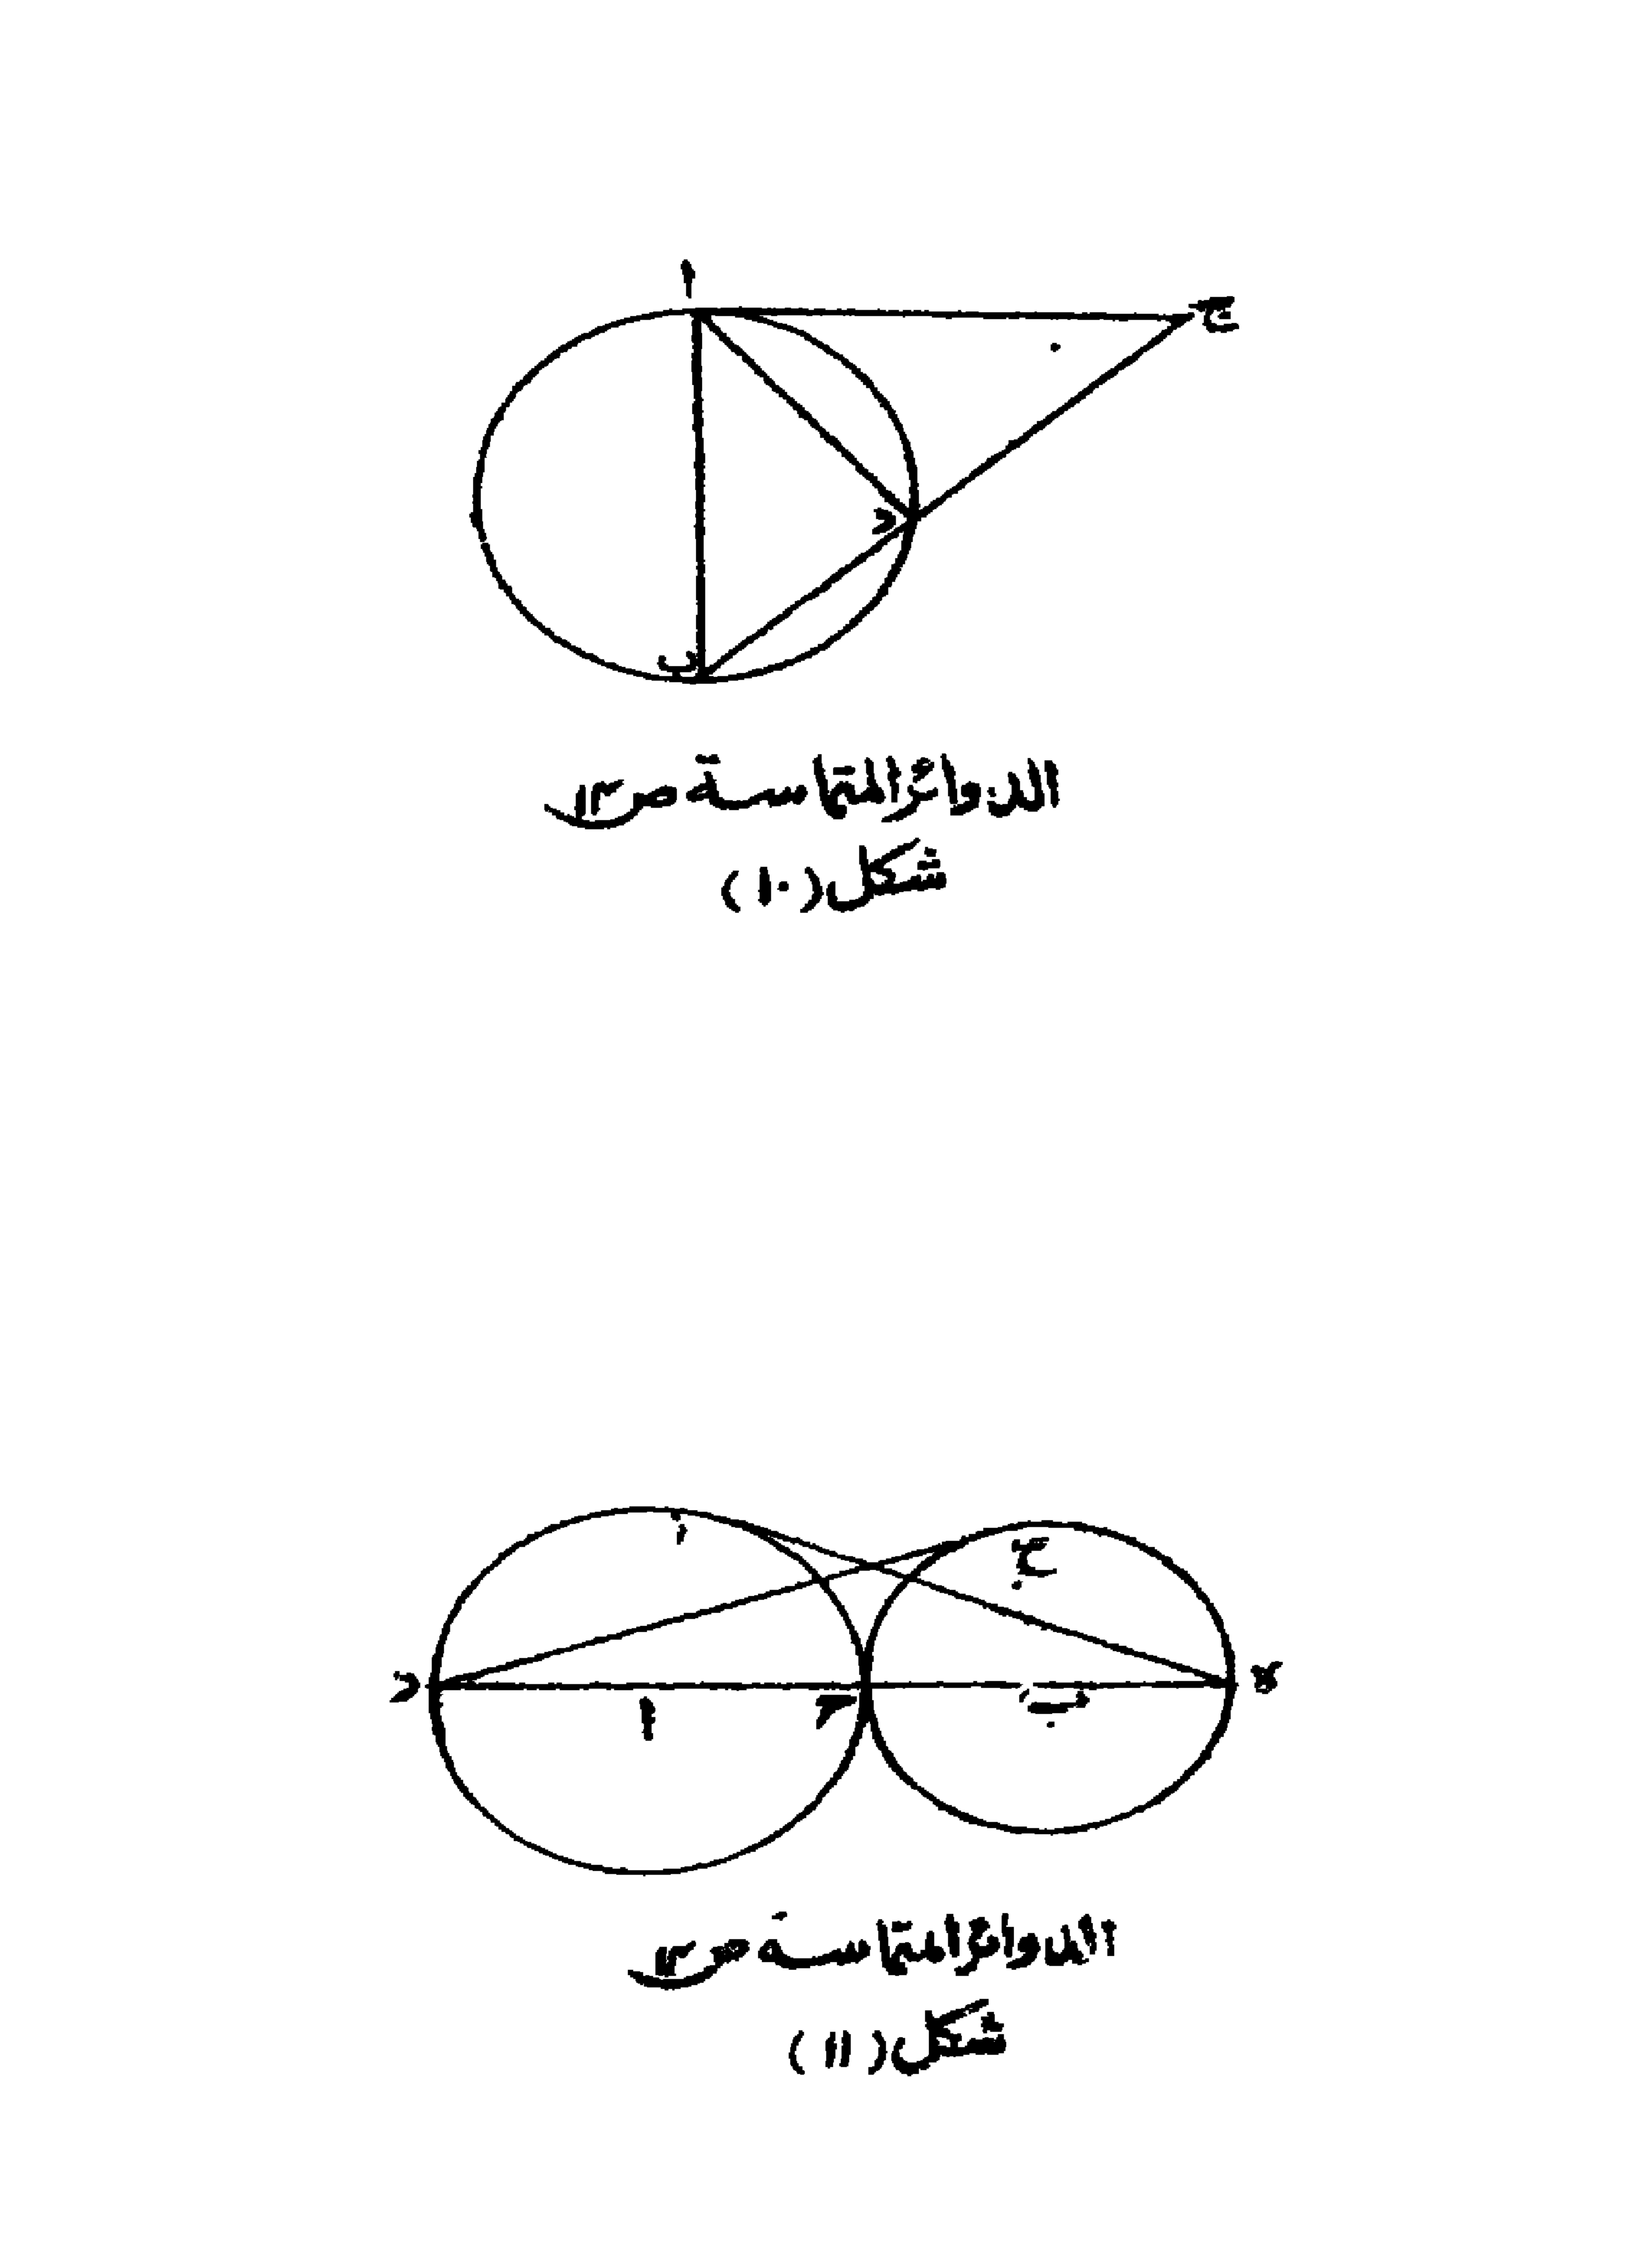 ا
ج
د
ب
الدوائر المتماسة ص١٣
شكل (١٠)
ز
ح
د
ا
ح
ب
ه
الدوائر المتماسة ص١٣
شكل (١١)